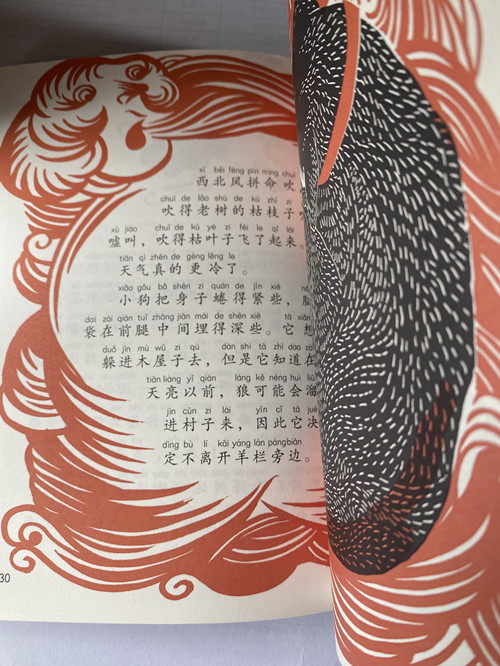 xī běi fēng pīn mìng chuī
西北风拼命吹
chuī de lǎo shù de kū zhī zi
吹得老树的枯枝子
xū jiào chuī de kū yè zi fēi le qǐ lái
嘘叫，吹得枯叶子飞了起来。
tiān qì zhēn de gèng lěng le
天气真的更冷了。
xiǎo gǒu bǎ shēn zi quán de jǐn xiē
小狗把身子蜷得紧些，
dai zài qián tuǐ zhōng jiān mái de shēn xiē tā xiǎng
袋在前腿中间埋得深些。它想
duǒ jìn mù wū zi qù dàn shì tā zhī dào zài
躲进木屋子去，但是它知道在
tiān liàng yǐ qián láng kě néng huì liū
天亮以前，狼可能会溜
jìn cūn zi lái yīn cǐ tā jué
进村子来，因此它决
dìng bù lí kāi yáng lán páng biān
定不离开羊栏旁边。
30